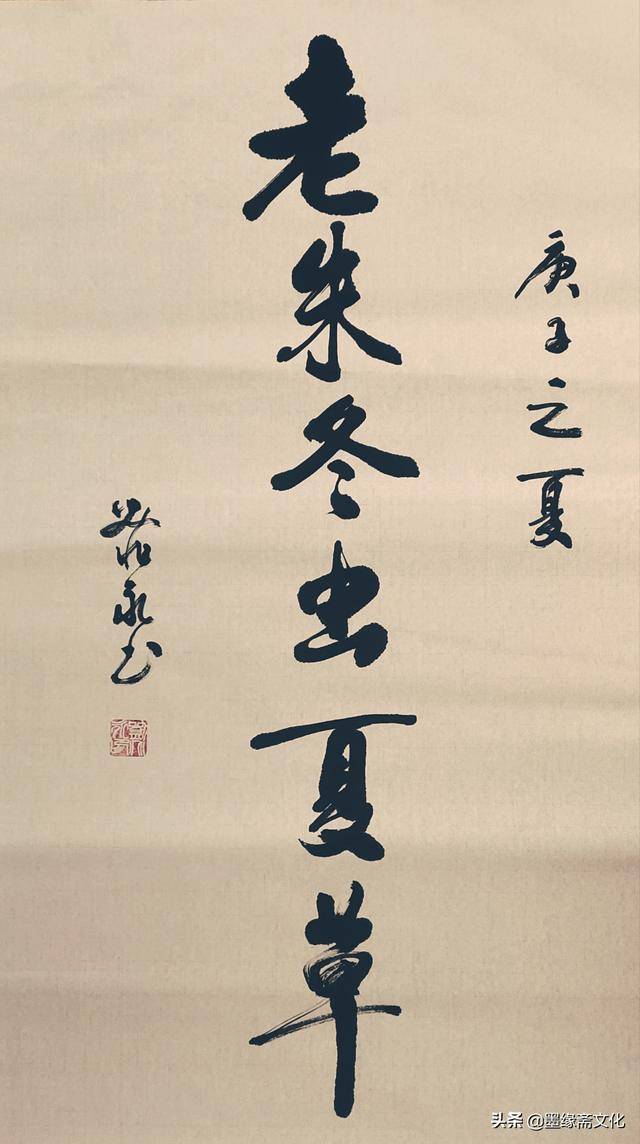 庚子之夏
老朱冬虫夏草
永书
头条 @墨缘斋文化